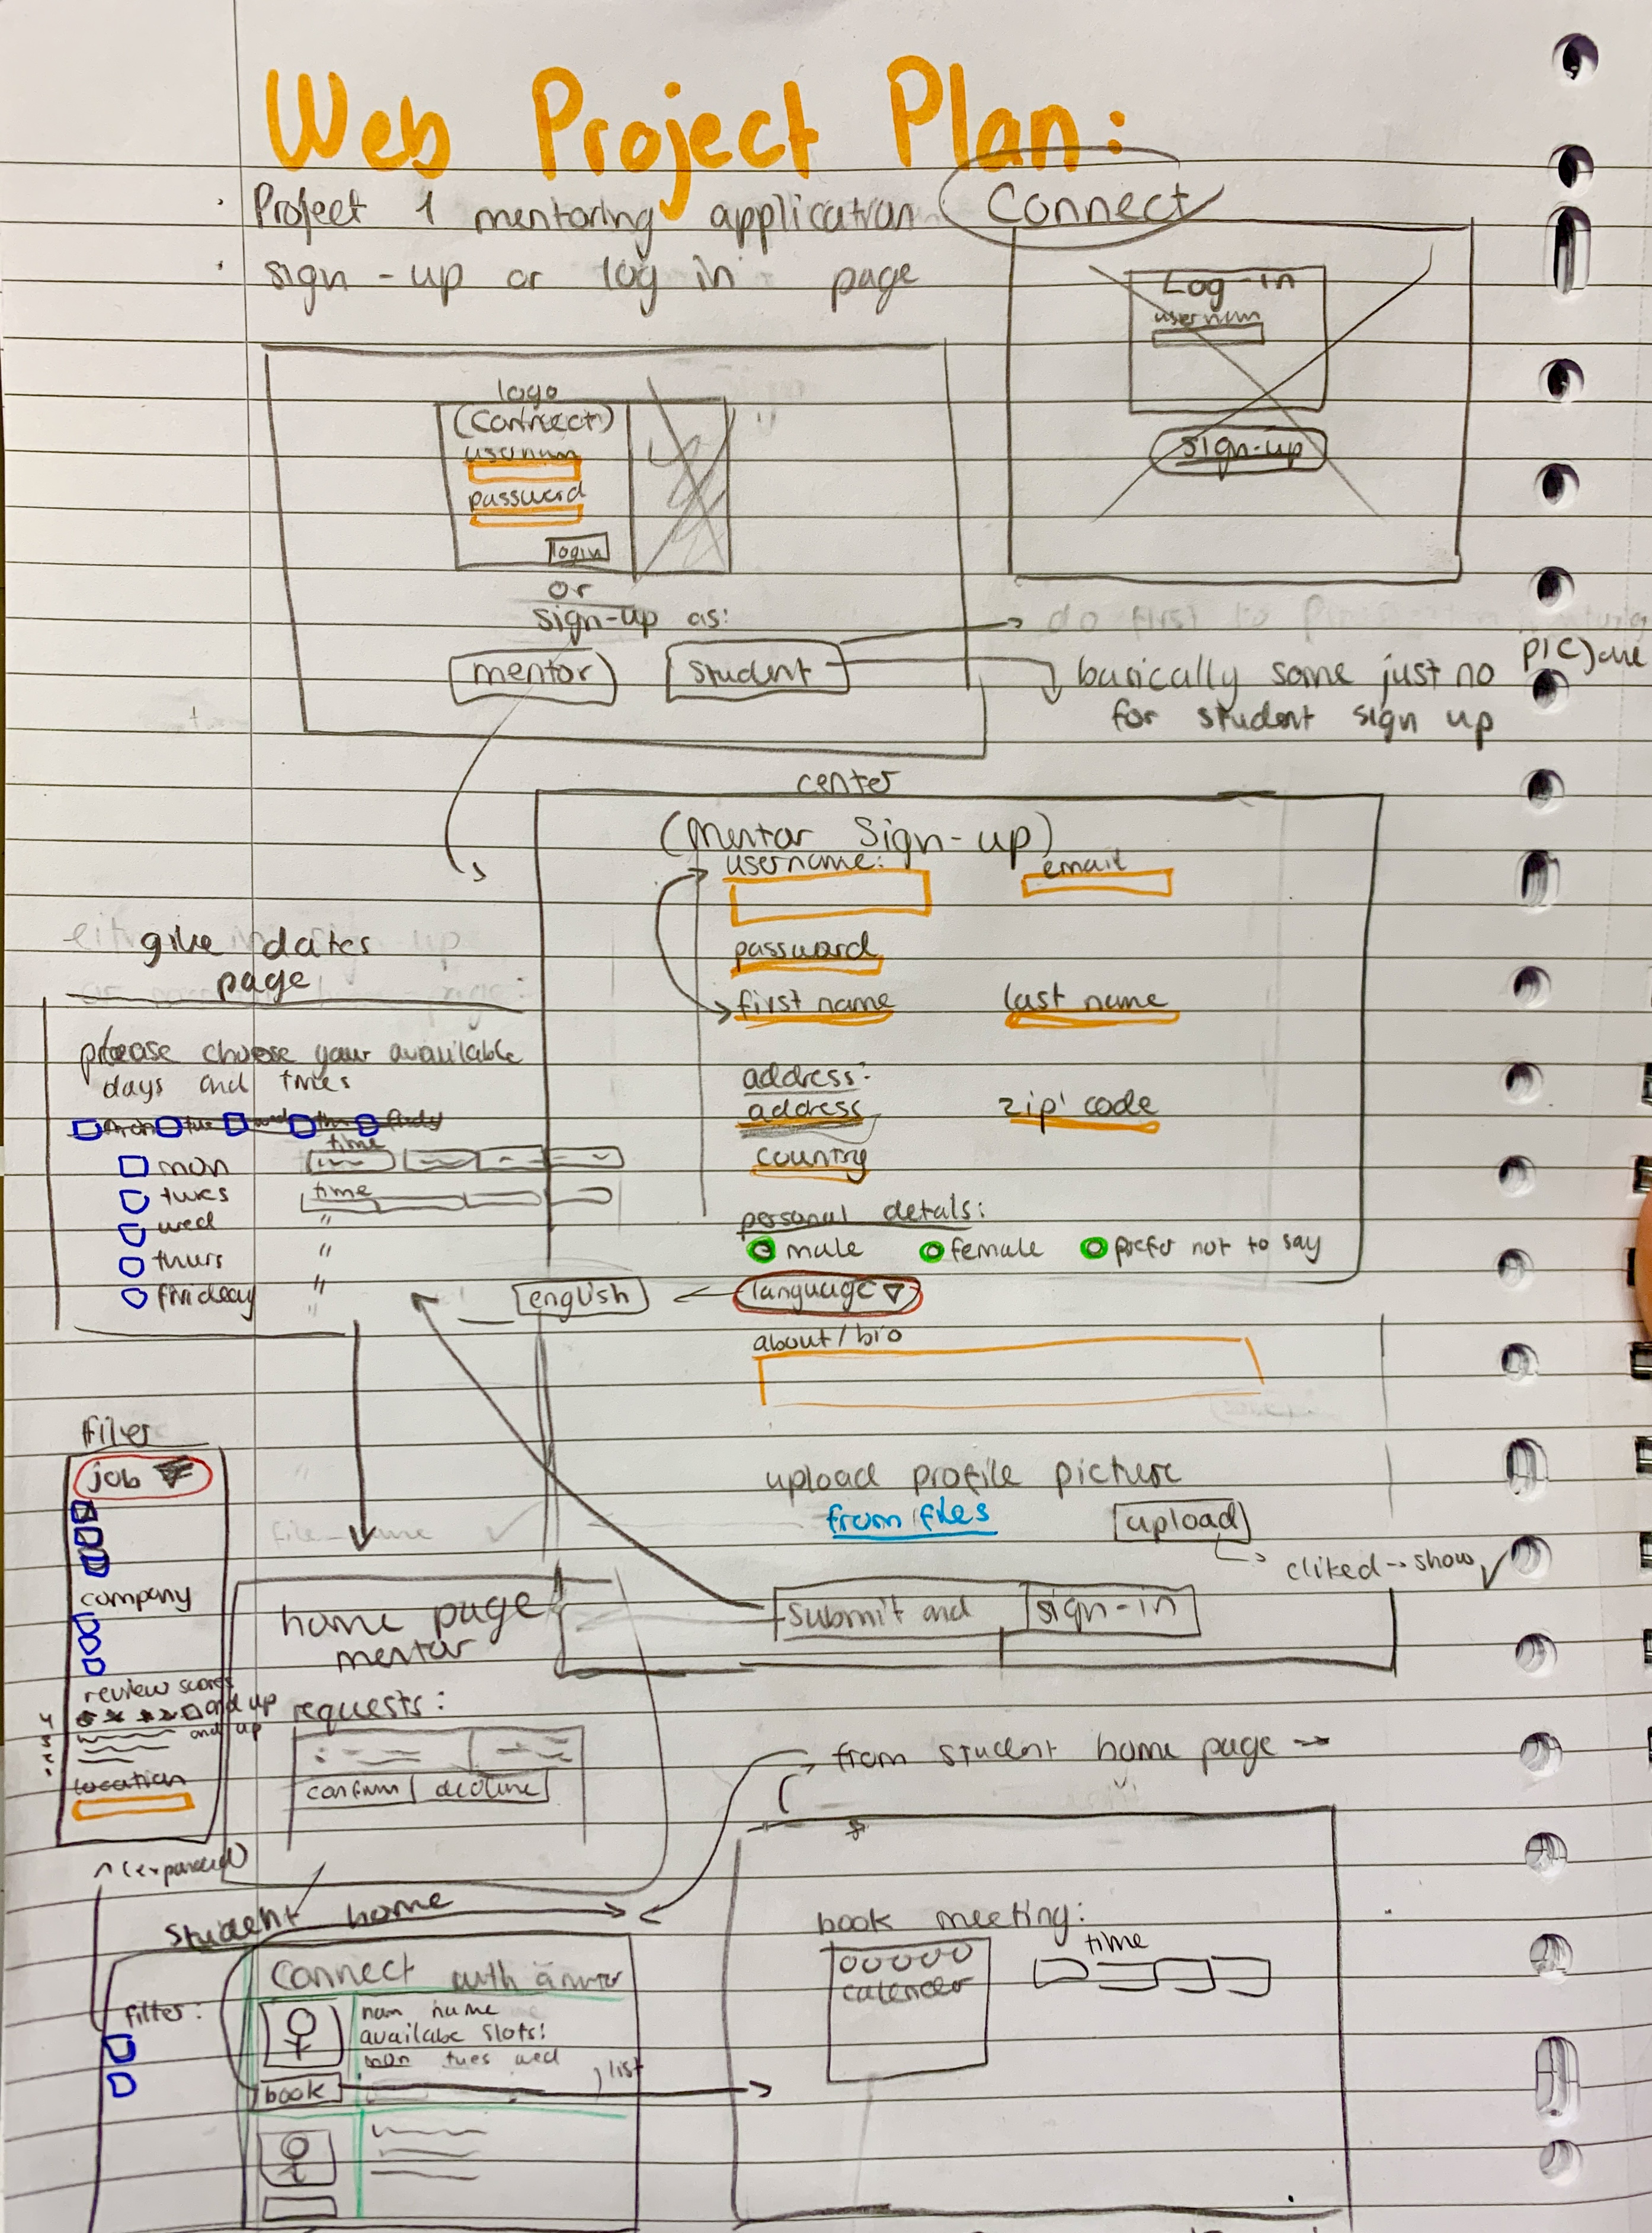 Web Project Plan:
· Project 1 mentoring application Connect
· sign-up or log in page
Log-in
usernam
sign-up
logo
(Connect)
usernam
password
login
or
sign-up as:
mentor
student
do first to
basically some just no pic)
for student sign up
center
(Mentor Sign-up)
username:
email
password
first name
last name
address:
address
zip code
country
personal details:
male
female
prefer not to say
language
english
about/bio
upload profile picture
from files
upload
cliked → show ✓
submit and
sign-in
give dates
page
please choose your available
days and times
mon
tues
wed
thurs
time
time
"
"
"
filter
job
company
review scores
and up
and up
location
(expanded)
home page
mentor
requests:
confirm
decline
from student home page →
student home
filter:
Connect with a
nam name
availabe slots:
mon tues wed
book
list
book meeting:
calender
time